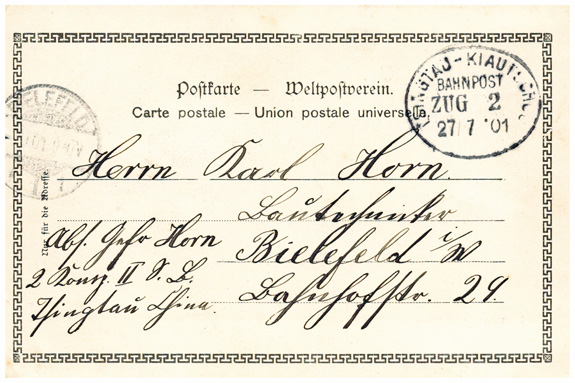 Postkarte — Weltpostverein.
Carte postale — Union postale universelle.
TSINGTAU-KIAUTSCHOU
BAHNPOST
ZUG 2
27/7 '01
BIELEFELD
Nur für die Adresse.
Herrn Karl Horn.
Bautechniker
Bielefeld i/W
Bahnhofstr. 29.
Abs. Gefr Horn
2 Komp. II S. B.
Tsingtau China.